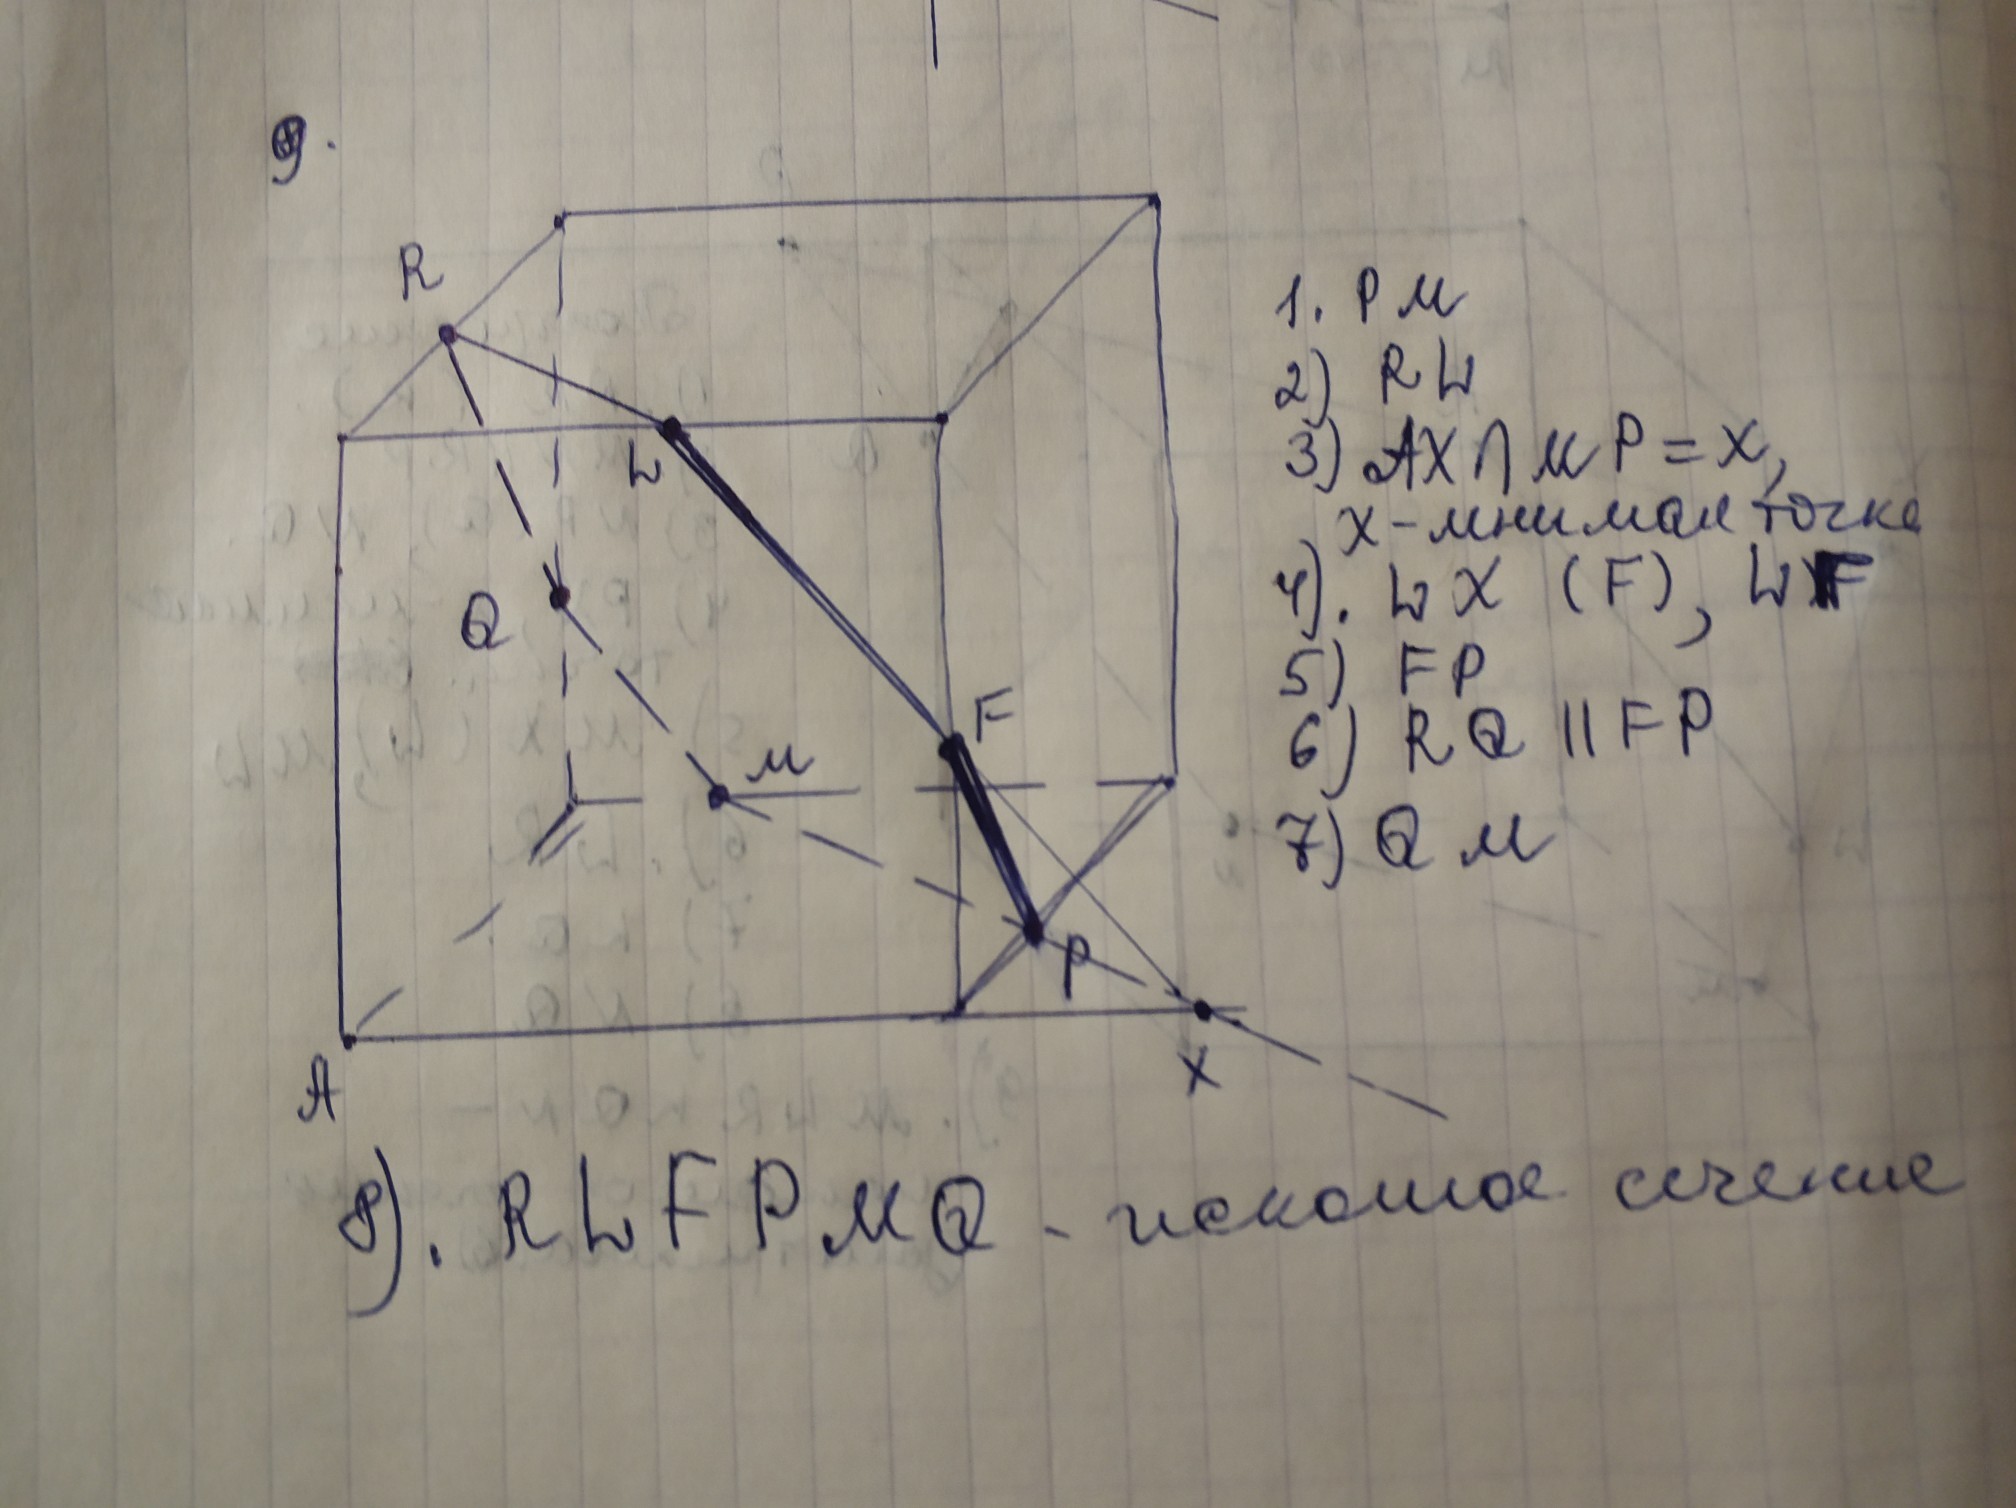 9.
R
L
Q
M
F
P
A
X
1. PM
2) RL
3) AX ∩ MP = X,
X - мнимая точка
4). LX (F), LF
5) FP
6) RQ || FP
7) QM
8). RLFPMQ - искомое сечение